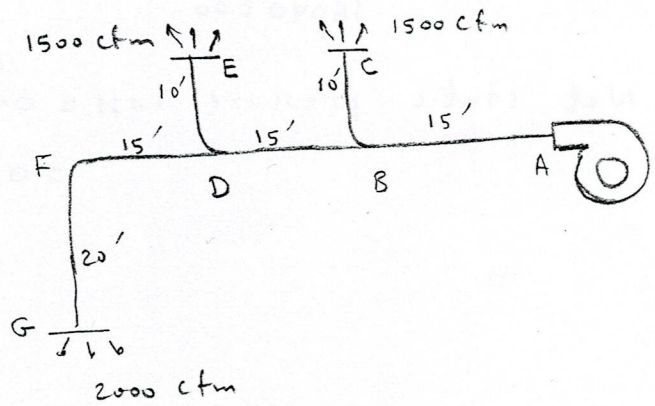 1500 cfm
1500 cfm
E
C
10'
10'
15'
15'
15'
F
D
B
A
20'
G
2000 cfm